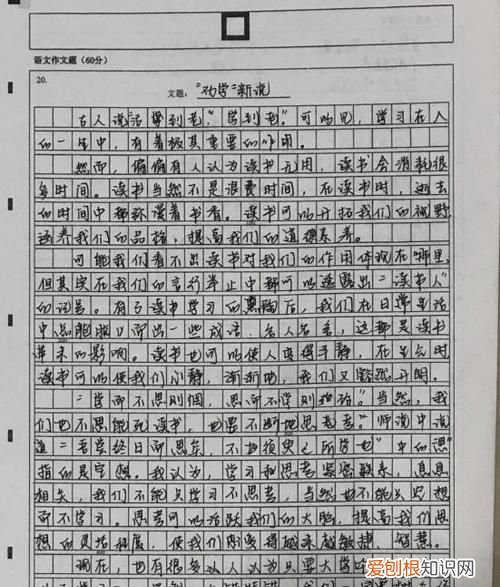 语文作文题(60分)
20.
文题:“劝学”新说
古人说“活到老,学到老。”可以见,学习在人
的一生中,有着极其重要的作用。
然而,偏偏有人认为读书无用,读书会消耗很
多时间。读书当然不是浪费时间,在读书时,逝去
的时间中都称漫着书香。读书可以开拓我们的视野,
涵养我们的品格,提高我们的道德素养。
可能我们看不出读书对我们的作用体现在哪里,
但其实在我们的言行举止中都可以透露出“读书人”
的词号。有了读书学习的熏陶后,我们在日常生活
中总能脱口而出一些成语、名人名言,这都是读书
带来的影响。读书也可以使人变得平静,在
读书可以使我们心静,渐渐地,我们又豁然开朗。
“学而不思则惘,思而不学则殆。”当然,我
们也不思能死读书,也要不断地思考。师说中说
道“吾尝终日而思矣,不如须臾之所学也”中的“思”
指的是空想。我认为,学习和思考紧密联系,息息
相关,我们不能只学习不思考,当然也不能只空想
而不学习。思考可以活跃我们的大脑,提高我们思
想的灵活程度,使我们变得越来越敏捷、
现在,也有很多人认为只要大学
爱刨根知识网